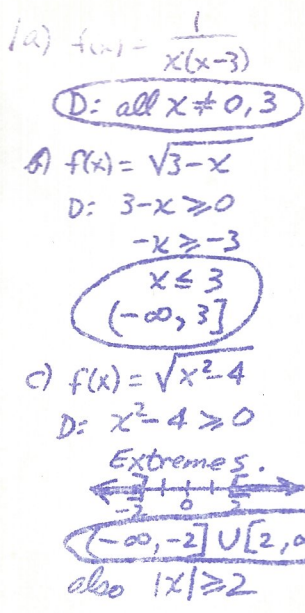 1a) f(x) = 1/x(x-3)
D: all x ≠ 0, 3
b) f(x) = √3-x
D: 3-x ≥ 0
-x ≥ -3
x ≤ 3
(-∞, 3]
c) f(x) = √x²-4
D: x²-4 ≥ 0
Extremes.
-2 0 2
(-∞, -2] ∪ [2, ∞
also |x| ≥ 2